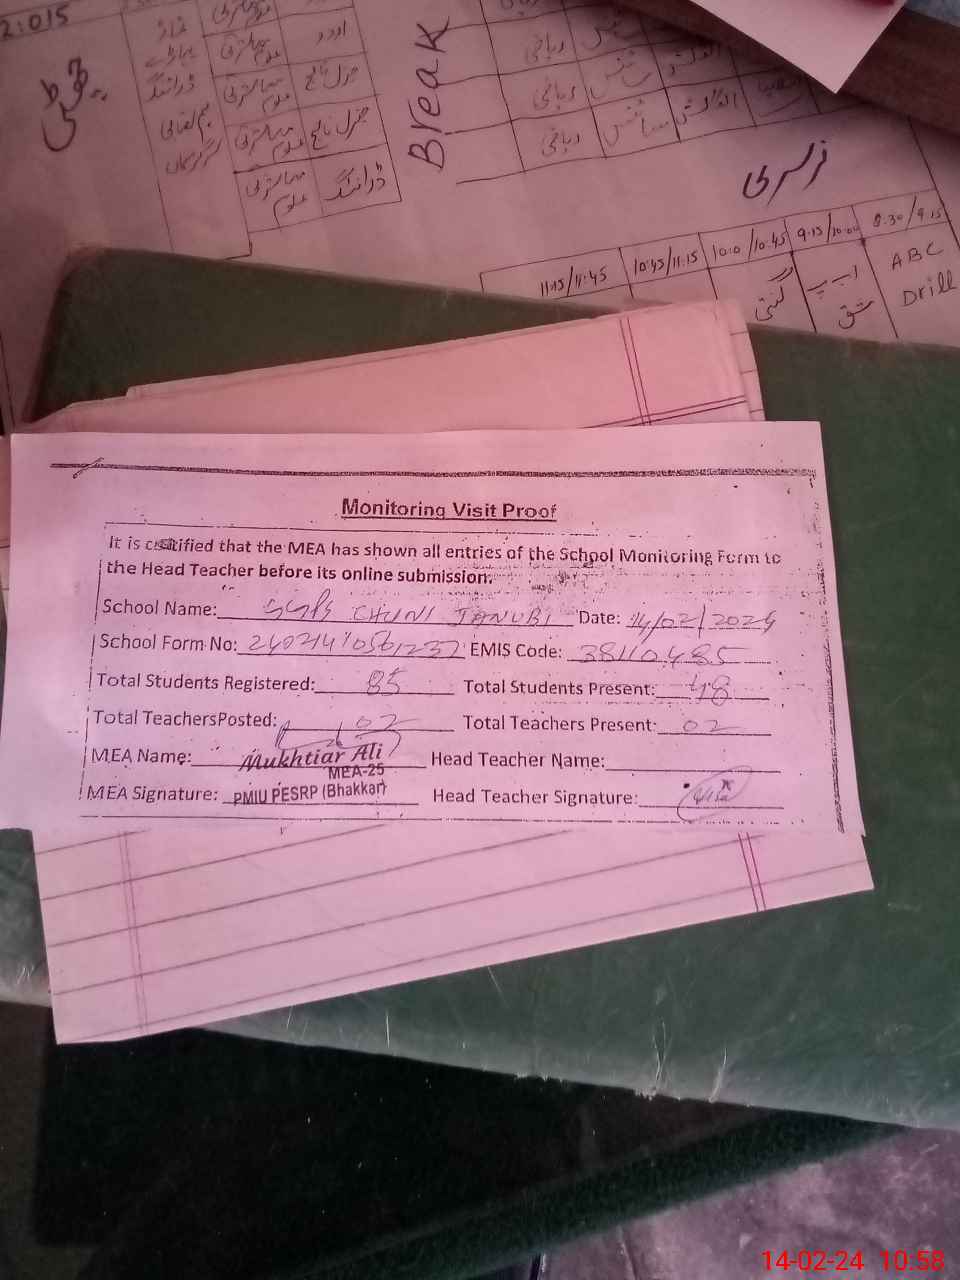 2:015
نماز
ڈرائنگ
اردو
جنرل نالج
جنرل نالج
ڈرائنگ
Break
ریاضی
سائنس
ریاضی
سائنس
ریاضی
سائنس
نرسری
11:15/11:45 10:45/11:15 10:0/10:45 9:15/10:00 8:30/9:15
گنتی ا ب پ ABC
مشق Drill
Monitoring Visit Proof
It is certified that the MEA has shown all entries of the School Monitoring Form to
the Head Teacher before its online submission.
School Name: GGPS CHUNI JANUBI Date: 14/02/2024
School Form No: 24021410561237 EMIS Code: 38110485
Total Students Registered: 85 Total Students Present: 48
Total TeachersPosted: 02 Total Teachers Present: 02
MEA Name: Mukhtiar Ali Head Teacher Name:
MEA-25
MEA Signature: PMIU PESRP (Bhakkar) Head Teacher Signature:
14-02-24 10:58